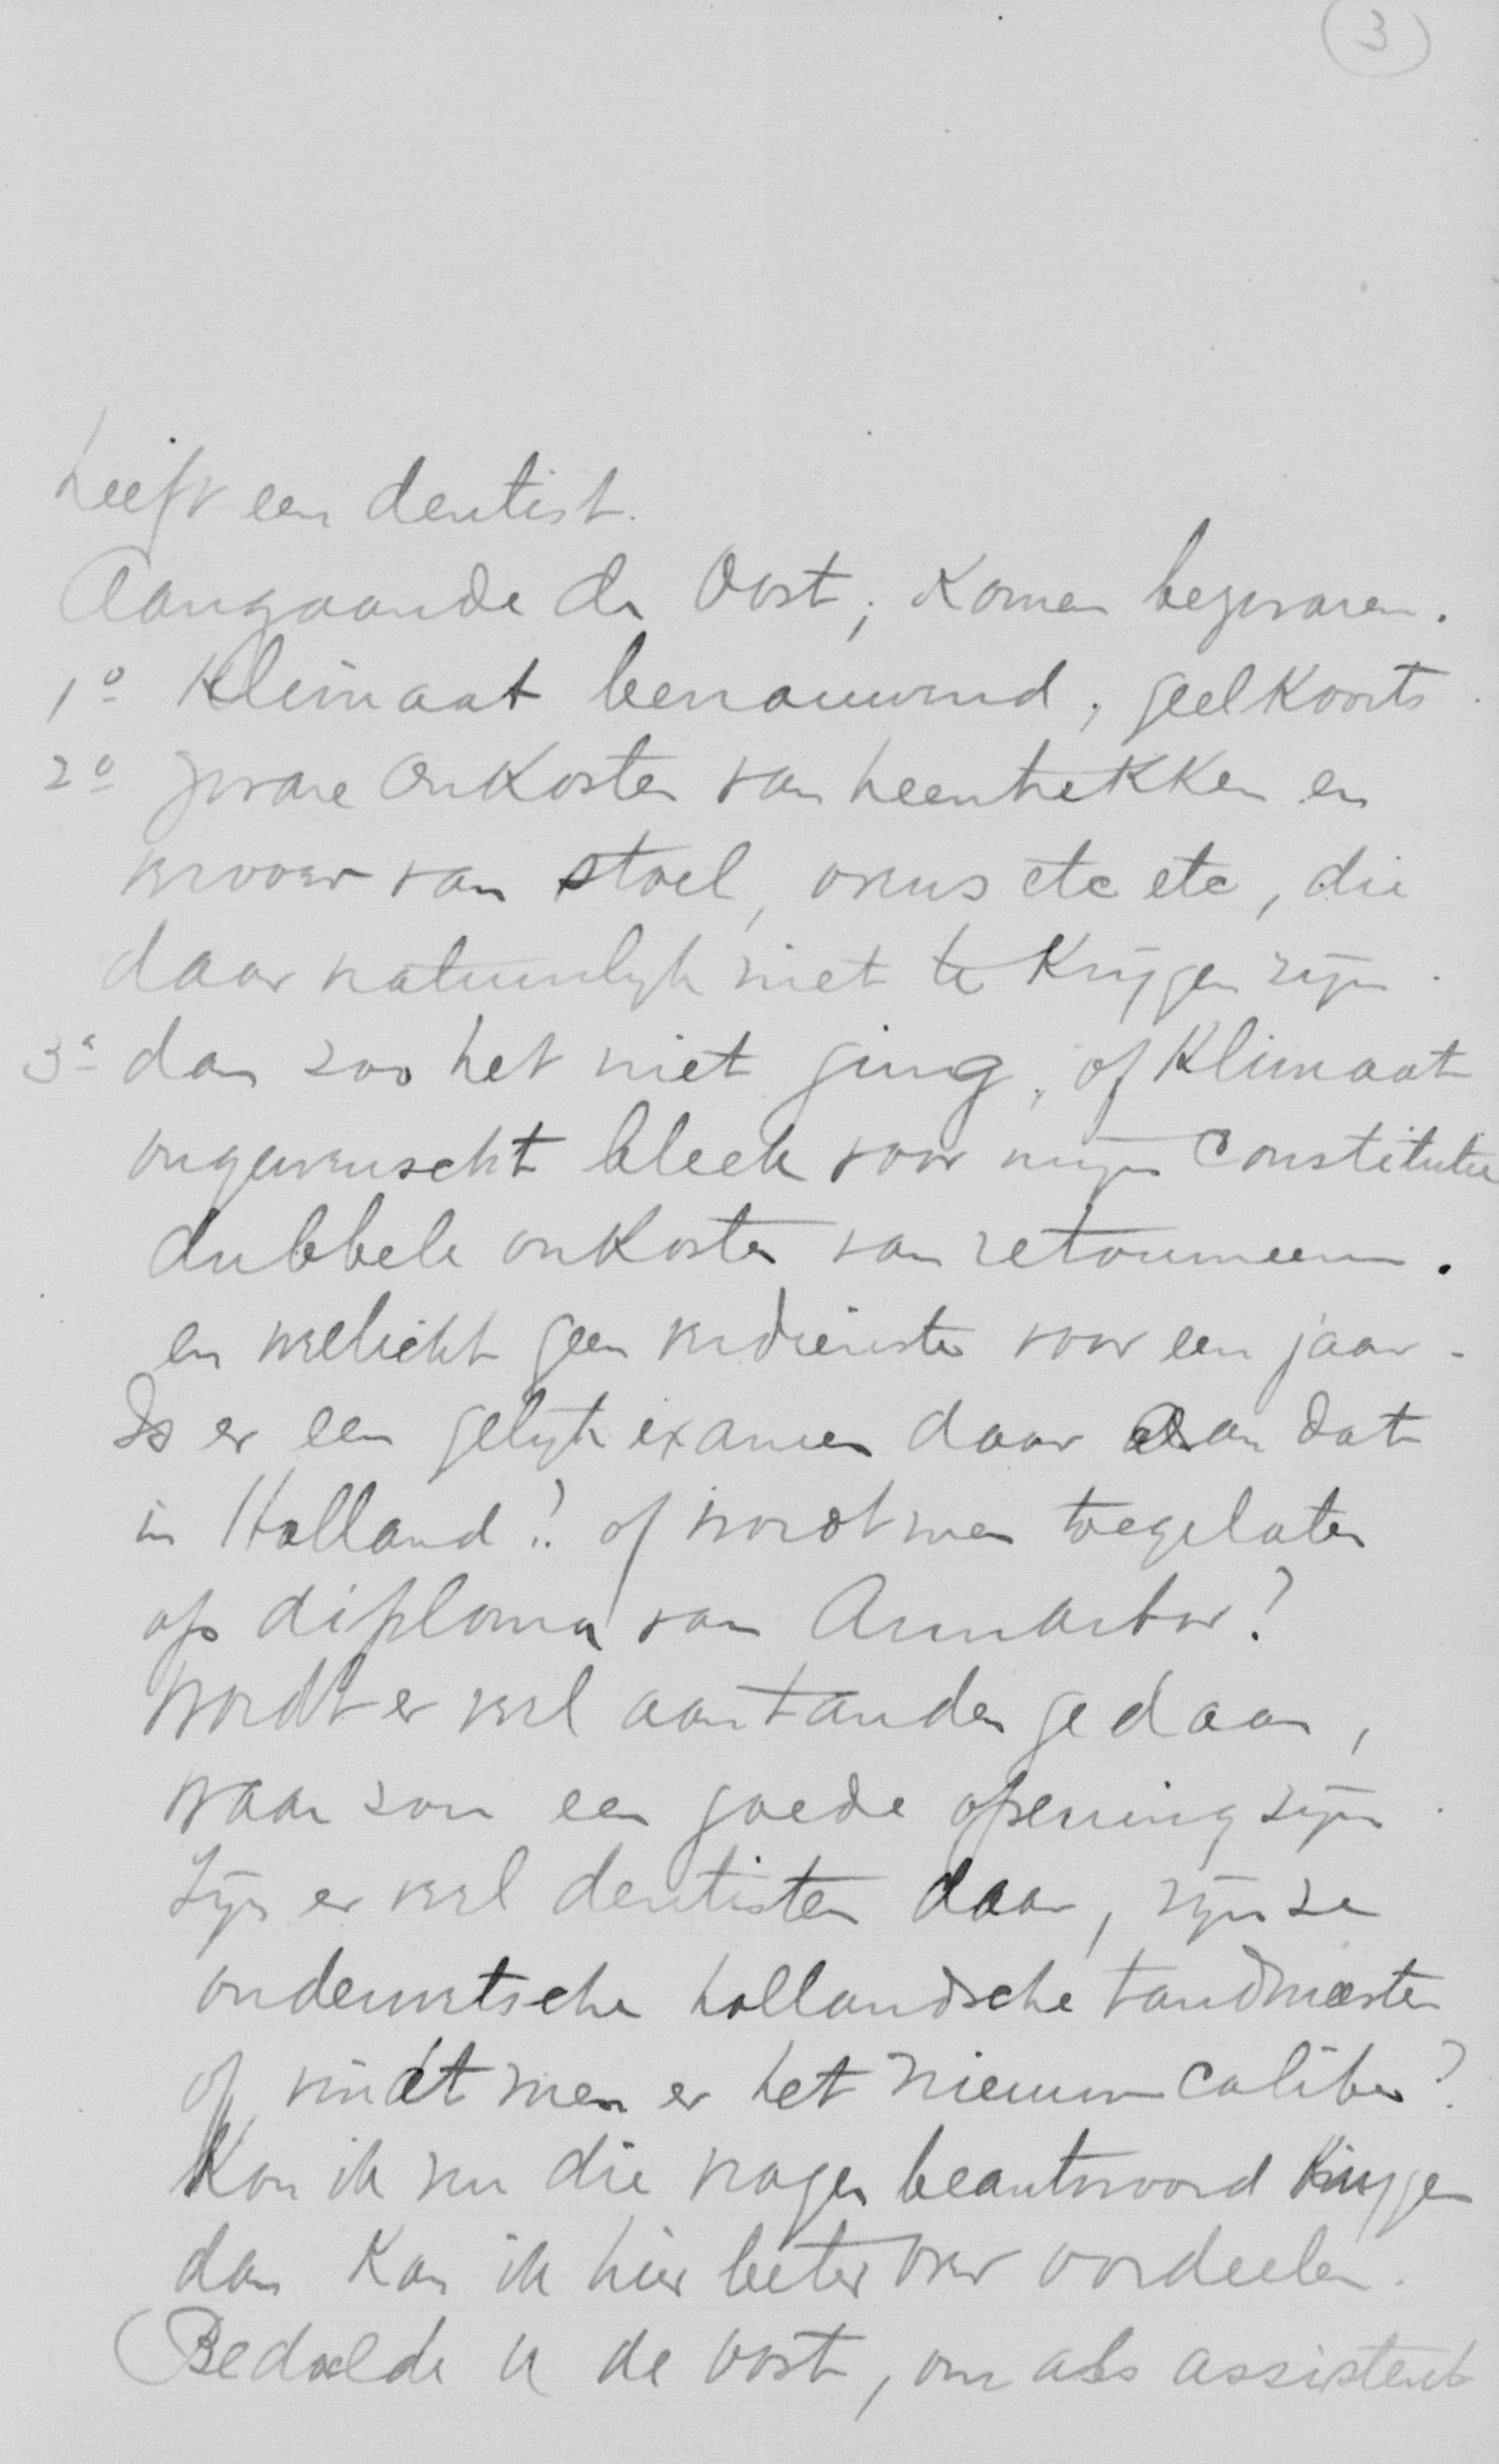 3
heeft een dentist.
Aangaande de Oost, komen bezwaren.
1º Klimaat benauwend, geelkoorts.
2º zware onkosten van heentrekken en
vervoer van stoel, ovens etc etc, die
daar natuurlyk niet te krijgen zijn.
3º dan zoo het niet ging, of klimaat
ongewenscht bleek voor mijn constitutie
dubbele onkosten van retourneeren.
en wellicht geen verdienste voor een jaar.
Is er een gelijk examen daar aan dat
in Holland? of wordt men toegelaten
op diploma van Annarbor?
Wordt er veel aan tanden gedaan,
waar zou een goede opening zijn.
Zijn er veel dentisten daar, zijn ze
ouderwetsche hollandsche tandmeesters
of vindt men er het nieuwe caliber?
Kon ik nu die vragen beantwoord krijgen
dan kan ik hier beter over oordeelen.
Bedoelde U de Oost, om als assistent